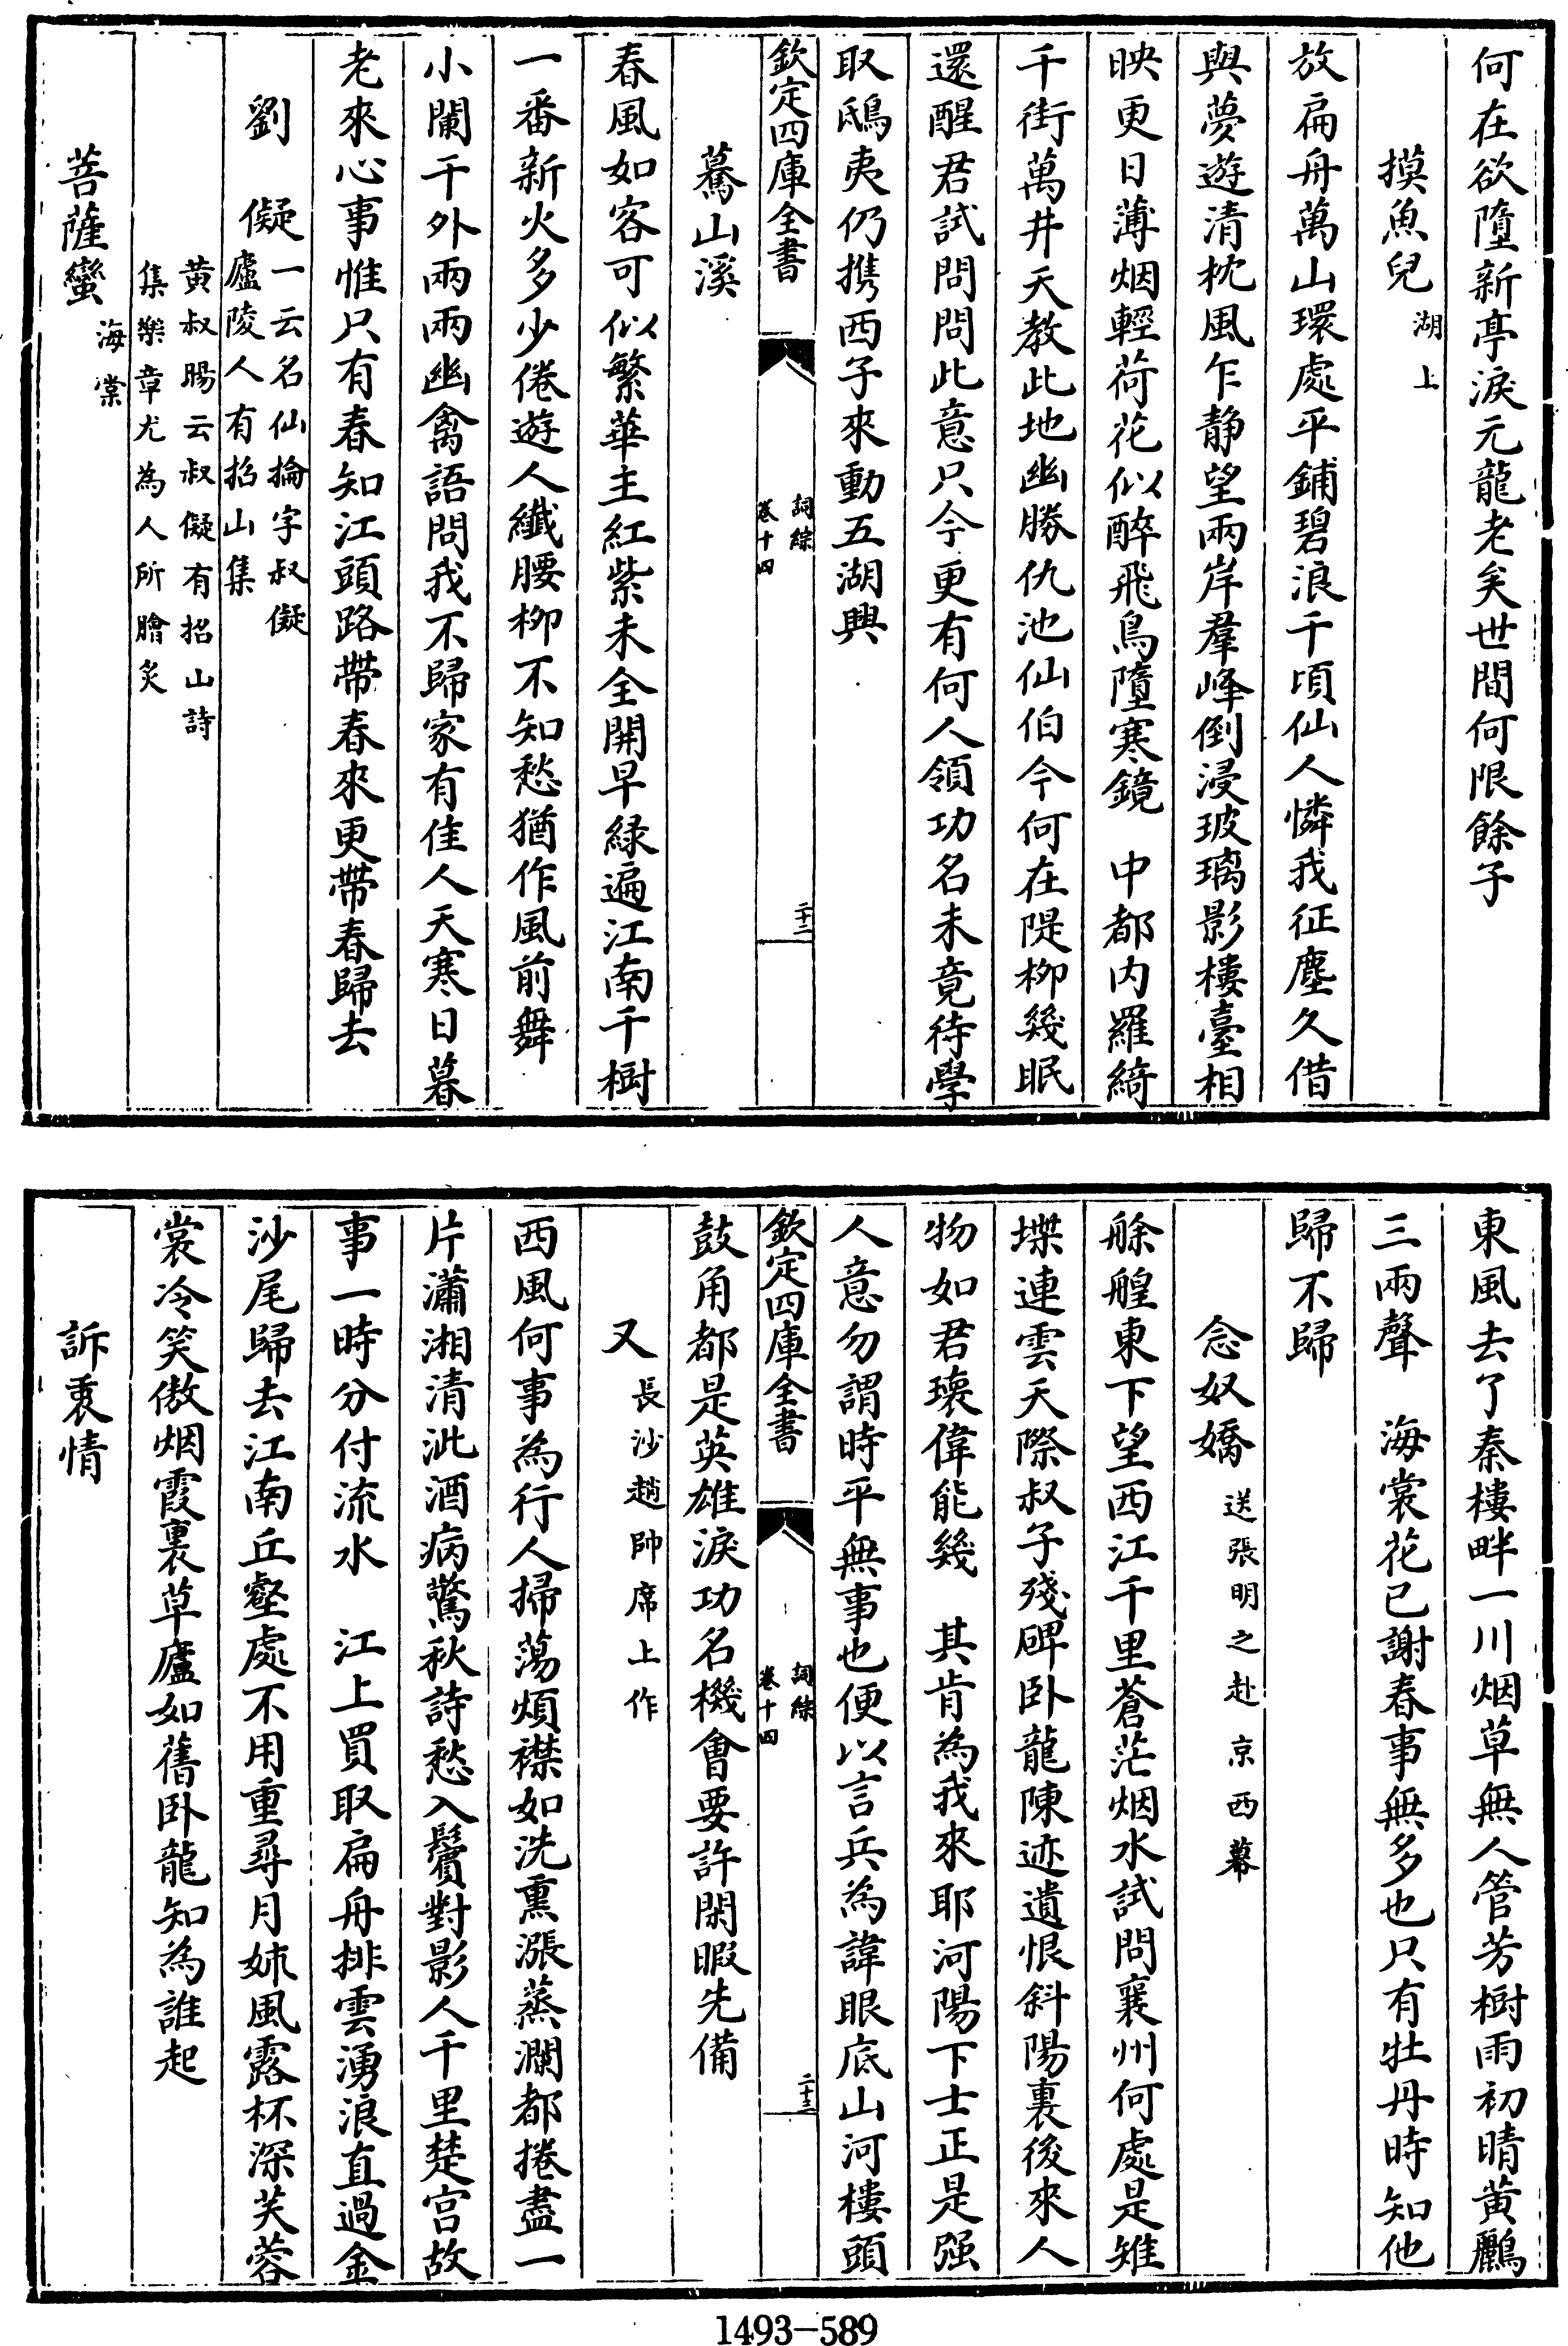 何在欲墮新亭淚元龍老矣世間何限餘子
摸魚兒 湖上
放扁舟萬山環處平鋪碧浪千頃仙人憐我征塵久借
與夢遊清枕風乍静望兩岸羣峰倒浸玻璃影樓臺相
映更日薄烟輕荷花似醉飛鳥墮寒鏡 中都内羅綺
千街萬井天教此地幽勝仇池仙伯今何在隄柳幾眠
還醒君試問問此意只今更有何人領功名未竟待學
取鴟夷仍携西子來動五湖興
欽定四庫全書
詞綜
卷十四
二十二
驀山溪
春風如客可似繁華主紅紫未全開早緑遍江南千樹
一番新火多少倦遊人纖腰柳不知愁猶作風前舞
小闌干外兩兩幽禽語問我不歸家有佳人天寒日暮
老來心事惟只有春知江頭路帶春來更帶春歸去
劉儗
一云名仙掄字叔儗
廬陵人有招山集
黄叔暘云叔儗有招山詩
集樂章尤為人所膾炙
菩薩蠻 海棠
東風去了秦樓畔一川烟草無人管芳樹雨初晴黄鸝
三兩聲 海裳花已謝春事無多也只有牡丹時知他
歸不歸
念奴嬌 送張明之赴京西幕
艅艎東下望西江千里蒼茫烟水試問襄州何處是雉
堞連雲天際叔子殘碑卧龍陳迹遺恨斜陽裏後來人
物如君瓌偉能幾 其肯為我來耶河陽下士正是强
人意勿謂時平無事也便以言兵為諱眼底山河樓頭
欽定四庫全書
詞綜
卷十四
二十三
鼓角都是英雄淚功名機會要許閑暇先備
又 長沙趙帥席上作
西風何事為行人掃蕩煩襟如洗熏漲蒸瀾都捲盡一
片瀟湘清泚酒病驚秋詩愁入鬢對影人千里楚宫故
事一時分付流水 江上買取扁舟排雲湧浪直過金
沙尾歸去江南丘壑處不用重尋月姊風露杯深芙蓉
裳冷笑傲烟霞裏草廬如舊卧龍知為誰起
訴衷情
1493-589